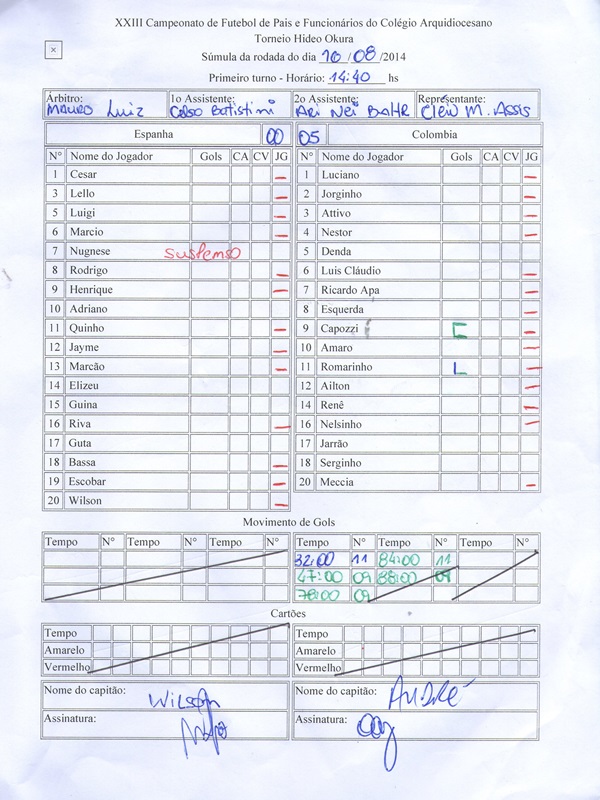 XXIII Campeonato de Futebol de Pais e Funcionários do Colégio Arquidiocesano
Torneio Hideo Okura
Súmula da rodada do dia 10/08/2014
Primeiro turno - Horário: 14:40 hs
Arbitro: Mauro Luiz 1o Assistente: Celso Batistini 2o Assistente: Ari Nei Bahr Representante: Cléio M. Assis
Espanha 00 05 Colombia
Nº Nome do Jogador Gols CA CV JG Nº Nome do Jogador Gols CA CV JG
1 Cesar 1 Luciano
3 Lello 2 Jorginho
5 Luigi 3 Attivo
6 Marcio 4 Nestor
7 Nugnese suspenso 5 Denda
8 Rodrigo 6 Luis Cláudio
9 Henrique 7 Ricardo Apa
10 Adriano 8 Esquerda
11 Quinho 9 Capozzi
12 Jayme 10 Amaro
13 Marcão 11 Romarinho
14 Elizeu 12 Ailton
15 Guina 14 Renê
16 Riva 16 Nelsinho
17 Guta 17 Jarrão
18 Bassa 18 Serginho
19 Escobar 20 Meccia
20 Wilson
Movimento de Gols
Tempo Nº Tempo Nº Tempo Nº Tempo Nº Tempo Nº Tempo Nº
32:00 11 84:00 11
47:00 09 88:00 09
78:00 09
Cartões
Tempo Tempo
Amarelo Amarelo
Vermelho Vermelho
Nome do capitão: Wilson Nome do capitão: André
Assinatura: Assinatura: